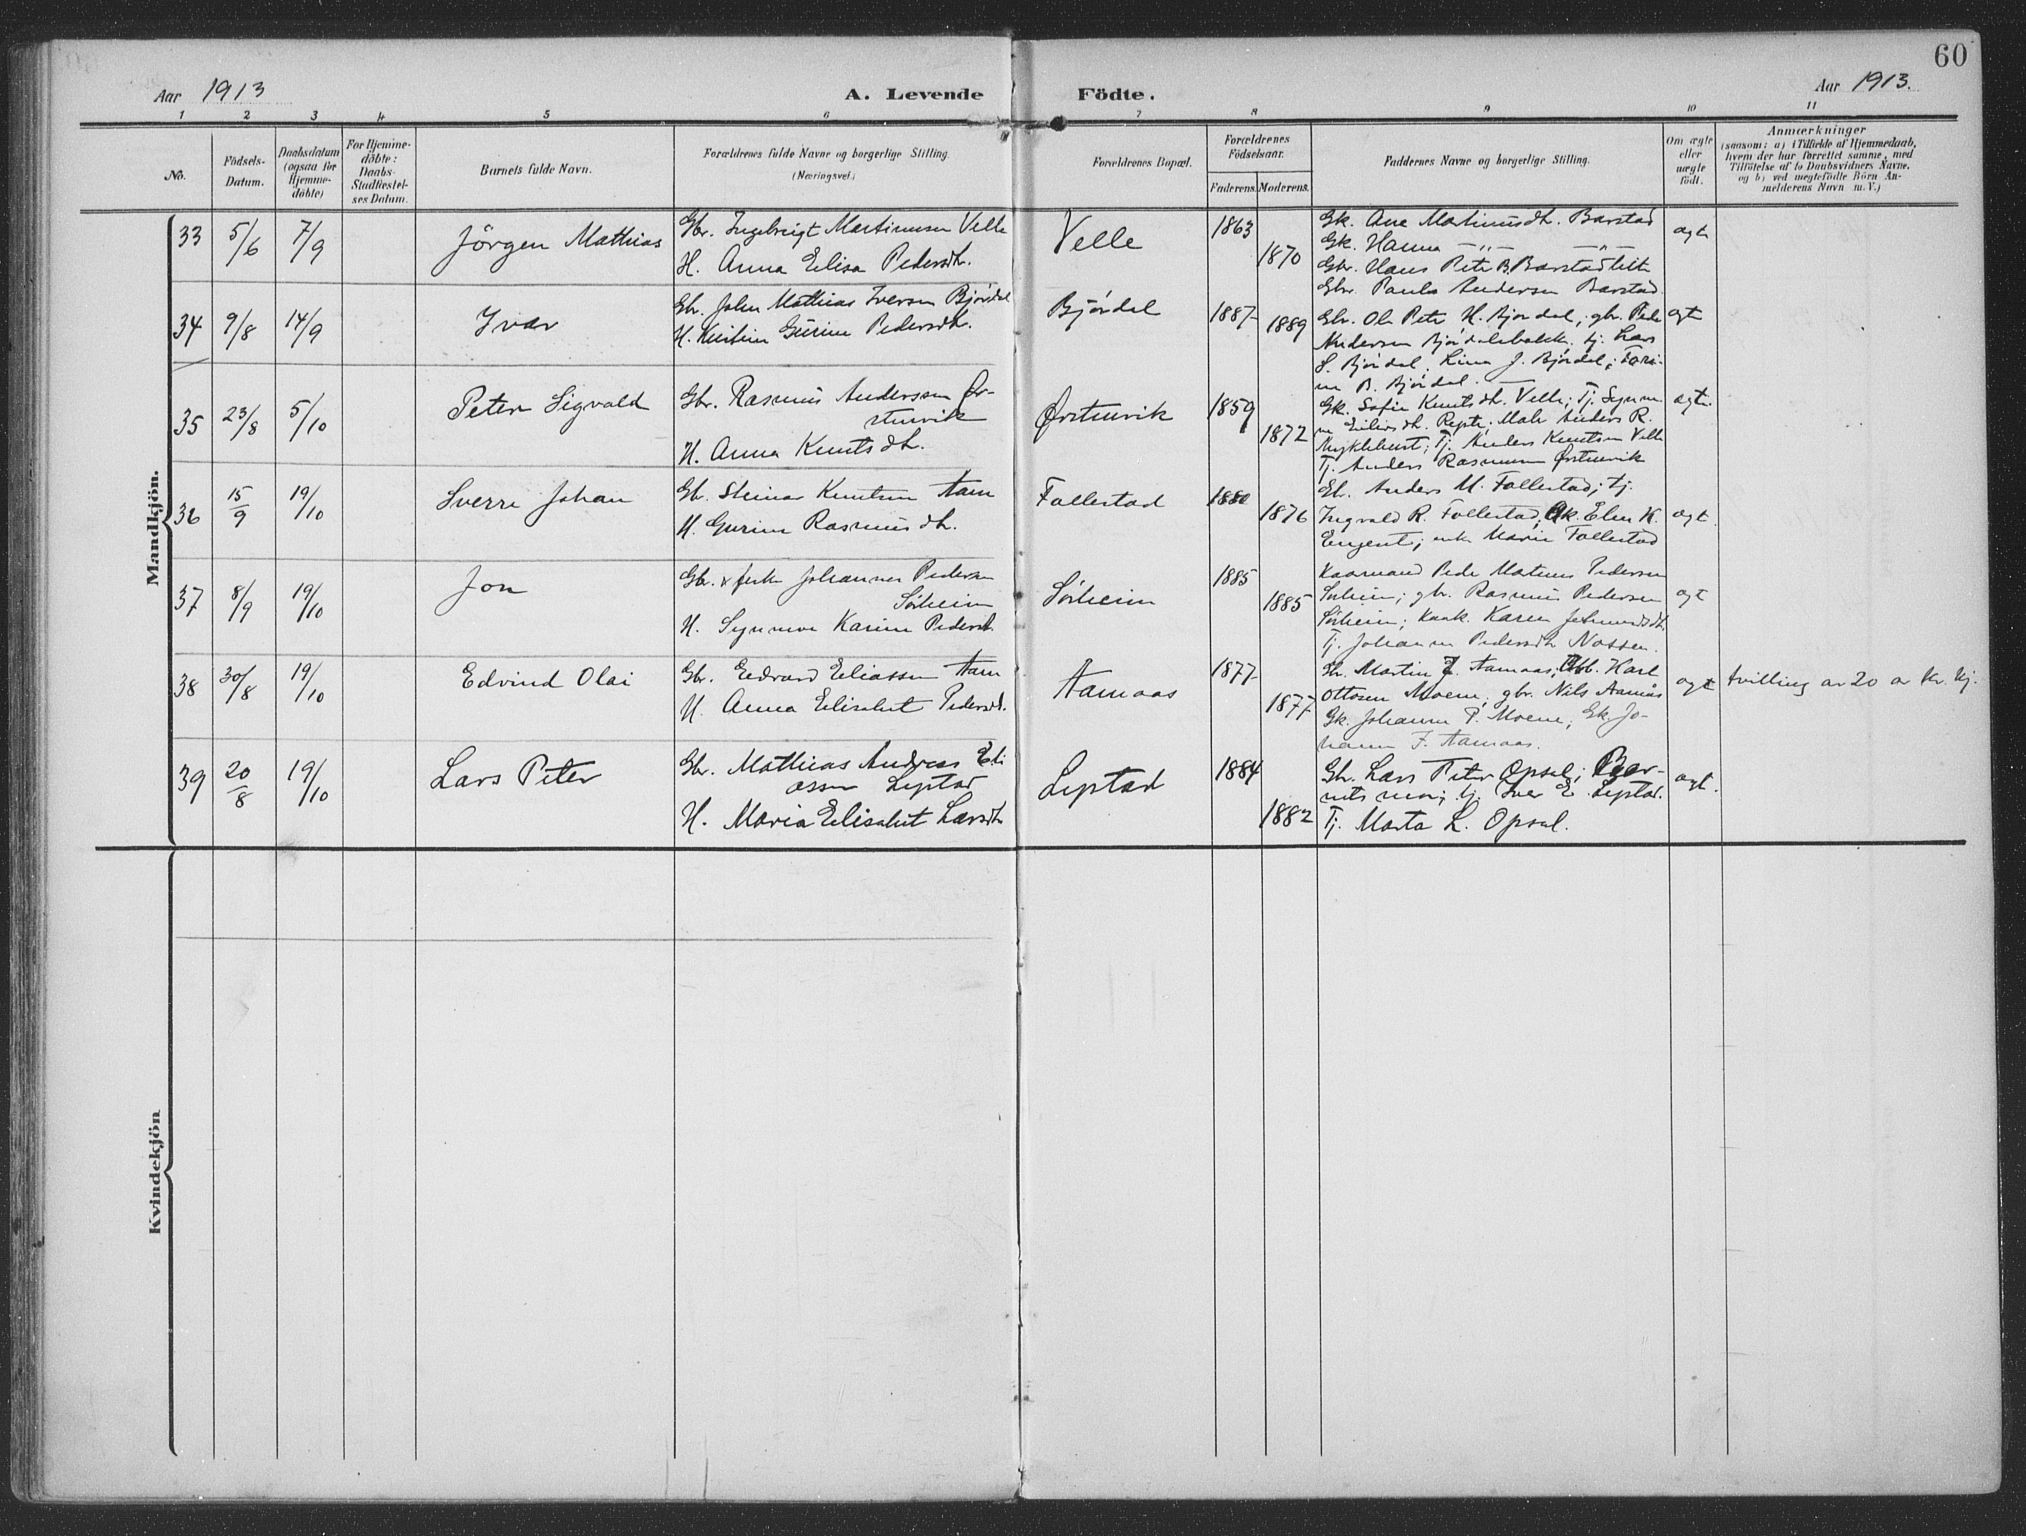 60
Aar 1913
A. Levende Födte.
Aar 1913.
1 2 3 4 5 6 7 8 9 10 11
No.
Födsels-Datum.
Daabsdatum (ogsaa for Hjemme-döbte)
For Hjemme-döbte: Daabs-Stadfæstel-ses Datum.
Barnets fulde Navn.
Forældrenes fulde Navne og borgerlige Stilling.
(Næringsvei.)
Forældrenes Bopæl.
Forældrenes Födselsaar.
Faderens. Moderens.
Faddernes Navne og borgerlige Stilling.
Om ægte eller uægte födt.
Anmærkninger
(saasom: a) i Tilfælde af Hjemmedaab,
hvem der har forrettet samme, med
Tilföielse af to Daabsvidners Navne.
og b) ved uægtefödte Börn An-
melderens Navn m. V.)
Mandkjön.
33 5/6 7/9 Jörgen Mathias
Gbr. Ingebrigt Martinussen Velle
H. Anna Elisa Pedersdt.
Velle
1863
1870
Gk. Ane Martinusdt. Barstad
Gk. Hanna —"— —"—
Gbr. Hans Peter B. Barstad
Gbr. Paul Andersen Barstad
ægt
34 9/8 14/9 Ivar
Gbr. John Mathias Iversen Bjørdal
H. Kristine Gurine Pedersdt.
Bjørdal
1887
1889
Gbr. Ole Peter H. Bjørdal, gbr. Peder
Andersen Bjørdalsbakk, tj. Lars
S. Bjørdal, Lina J. Bjørdal, Tori-
ne B. Bjørdal.
ægt
35 23/8 5/10 Peter Sigvald
Gbr. Rasmus Anderssen Ør-
stenvik
H. Anna Knutsdt.
Ørstenvik
1859
1872
Gk. Sofie Knutsdt. Velle; Tj. Synnø-
ve Eilivsdt. Anders R.
Myklebust; Tj. Anders Knutsen Velle
Tj. Anders Rasmussen Ørstenvik
ægt.
36 15/9 19/10 Sverre Johan
Gbr. Steinar Knutsen Aam
H. Gurine Rasmusdt.
Follestad
1880
1876
Gbr. Anders M. Follestad; tj.
Ingvald R. Follestad, Gk. Elen K.
Engeset; enke Marie Follestad
ægt.
37 8/9 19/10 Jon
Gbr. & fisk. Johannes Pedersen
Sørheim
H. Synnøve Karine Pedersdt.
Sørheim
1885
1885
Kaarmand Peder Martinus Pedersen
Sørheim; gbr. Rasmus Pedersen
Sørheim; kaark. Karen
Tj. Johanne Pedersdt. Nossen.
ægt
38 30/8 19/10 Edvind Olai
Gbr. Edvard Eliassen Aam
H. Anna Elisabet Pedersdt.
Aamaas
1877
1877
Gbr. Martin E. Aamaas; Karl
Ottosen Moene, gbr. Nils Aamås
Gk. Johanne P. Moene, Gk. Jo-
hanne F. Aamaas.
ægt tvilling av 20 av kv. kj.
39 20/8 19/10 Lars Peter
Gbr. Mathias Andreas Eli
assen Leptad
H. Maria Elisabet Larsdt.
Leptad
1884
1882
Gbr. Lars Peter Opsal; Bar-
nets mor; tj. Iver E. Leptad.
Tj. Marta L. Opsal.
ægt.
Kvindekjön